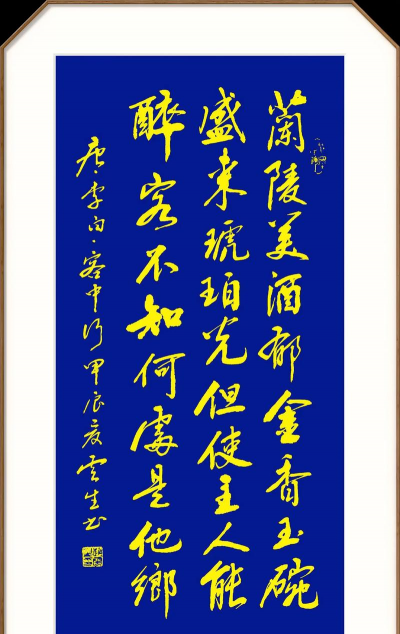 蘭陵美酒郁金香玉碗
盛来琥珀光但使主人能
醉客不知何處是他鄉
唐·李白·客中行甲辰夏云生书